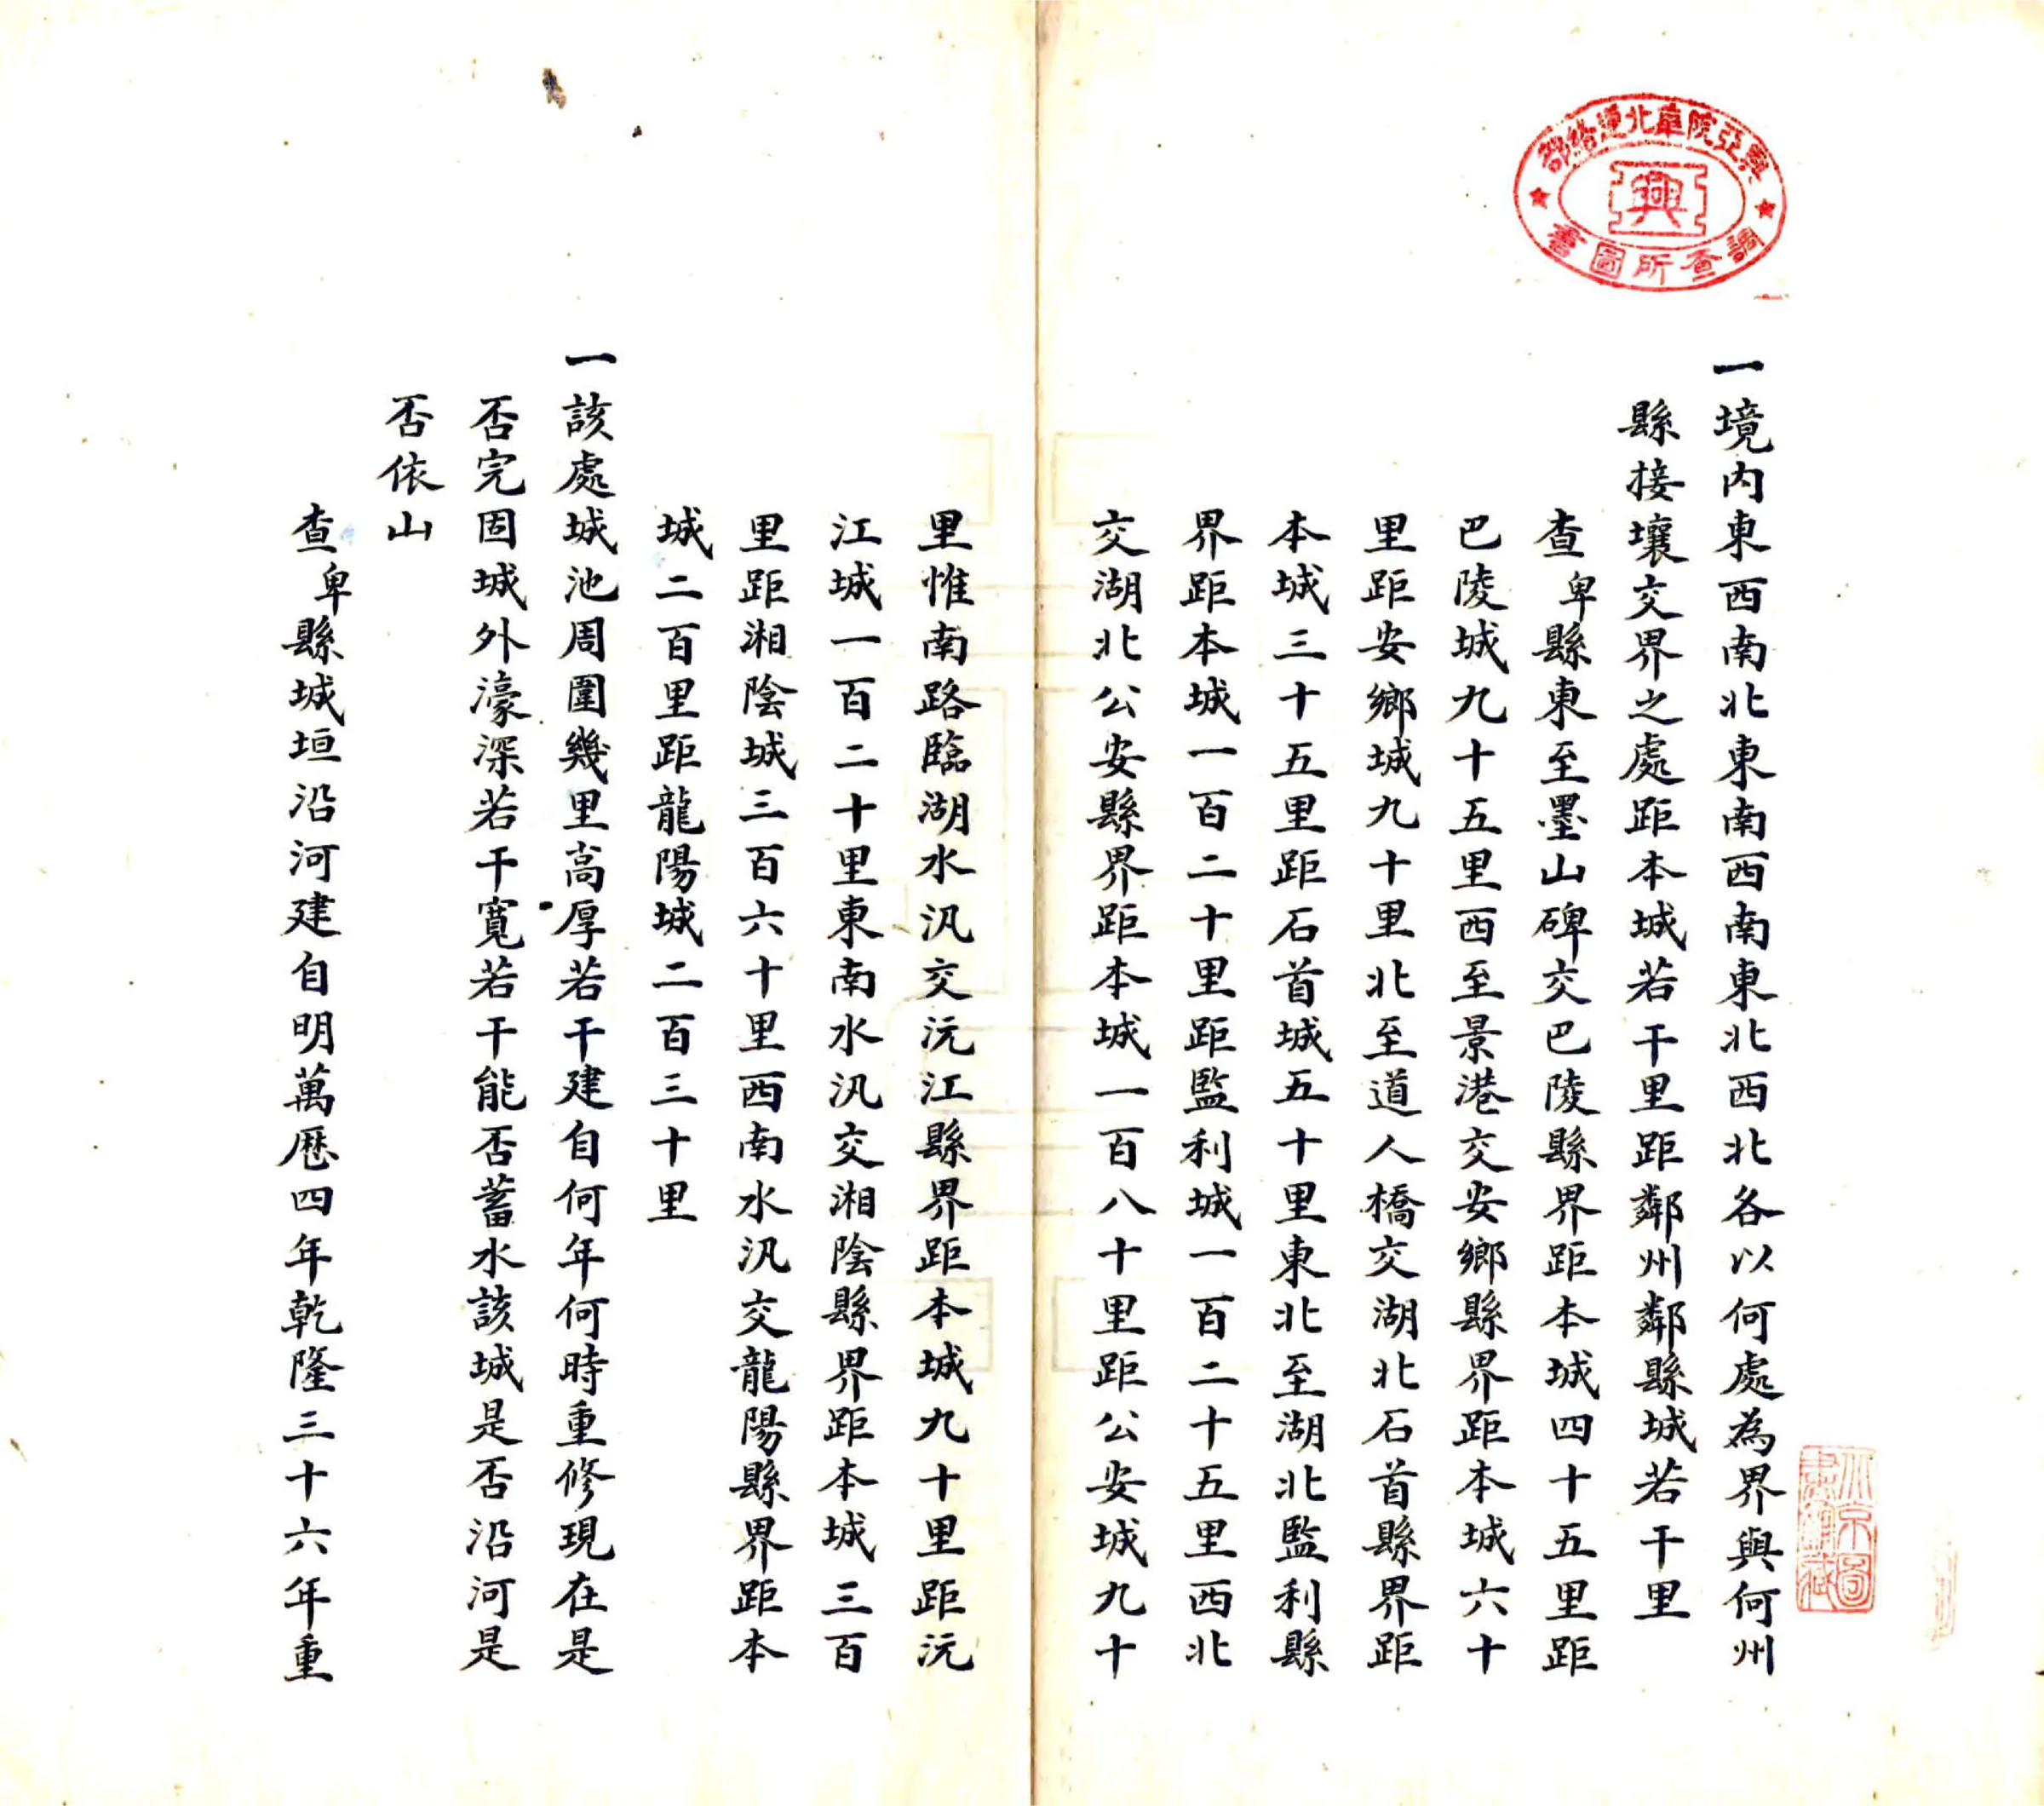 興亞院華北連絡部
興
調查所圖書
一境內東西南北東南西南東北西北各以何處為界與何州
縣接壤交界之處距本城若干里距鄰州鄰縣城若干里
查卑縣東至墨山碑交巴陵縣界距本城四十五里距
巴陵城九十五里西至景港交安鄉縣界距本城六十
里距安鄉城九十里北至道人橋交湖北石首縣界距
本城三十五里距石首城五十里東北至湖北監利縣
界距本城一百二十里距監利城一百二十五里西北
交湖北公安縣界距本城一百八十里距公安城九十
里惟南路臨湖水汎交沅江縣界距本城九十里距沅
江城一百二十里東南水汎交湘陰縣界距本城三百
里距湘陰城三百六十里西南水汎交龍陽縣界距本
城二百里距龍陽城二百三十里
一該處城池周圍幾里高厚若干建自何年何時重修現在是
否完固城外濠深若干寬若干能否蓄水該城是否沿河是
否依山
查卑縣城垣沿河建自明萬歷四年乾隆三十六年重